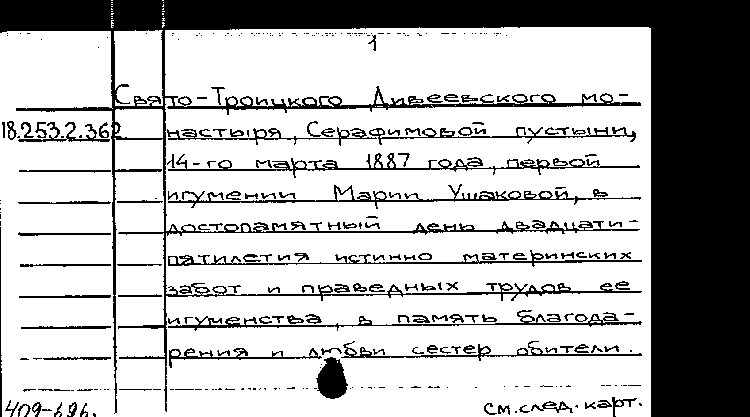 1
Свято-Троицкого Дивеевского мо-
18.253.2.362 настыря, Серафимовой пустыни,
14-го марта 1887 года, первой
игумении Марии Ушаковой, в
достопамятный день двадцати-
пятилетия истинно материнских
забот и праведных трудов ее
игуменства, в память благода-
рения и любви сестер обители.
409-696. см. след. карт.